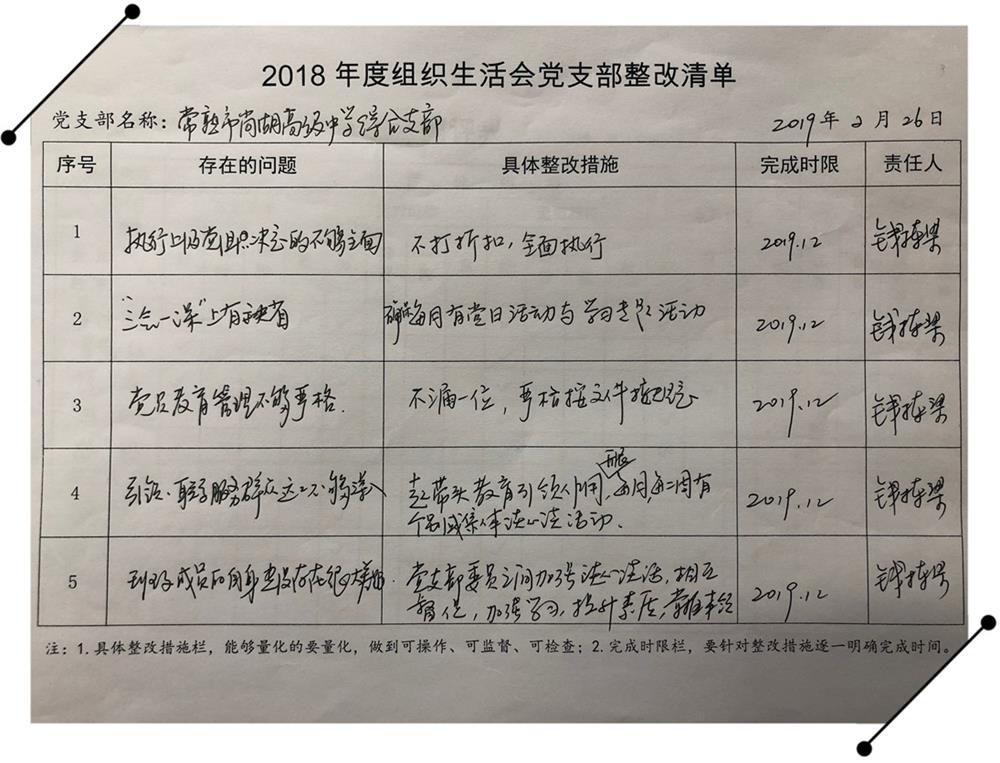 2018 年度组织生活会党支部整改清单
党支部名称：常熟市尚湖高级中学综合支部 2019 年 2 月 26 日
序号 存在的问题 具体整改措施 完成时限 责任人
1 执行上级党组织决定的不够全面 不打折扣，全面执行 2019.12 钱栋梁
2 "三会一课"上有缺省 确保每月有党日活动与学习专题活动 2019.12 钱栋梁
3 党员教育管理不够严格. 不漏一位，严格按文件规定 2019.12 钱栋梁
4 服务群众这一不够深入 起带头教育引领作用，每月，每二周有
个别或集体谈心谈活动. 2019.12 钱栋梁
5 班子成员的自身建设存在很大差距. 党支部委员之间加强谈心谈话，相互
督促，加强学习，提升素质， 2019.12 钱栋梁
注：1.具体整改措施栏，能够量化的要量化，做到可操作、可监督、可检查；2.完成时限栏，要针对整改措施逐一明确完成时间。